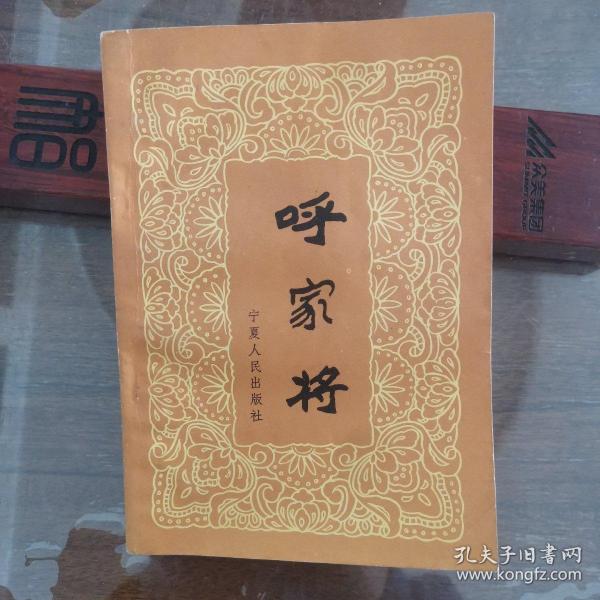 呼家将
宁夏人民出版社
众美集团
孔夫子旧书网
www.kongfz.com